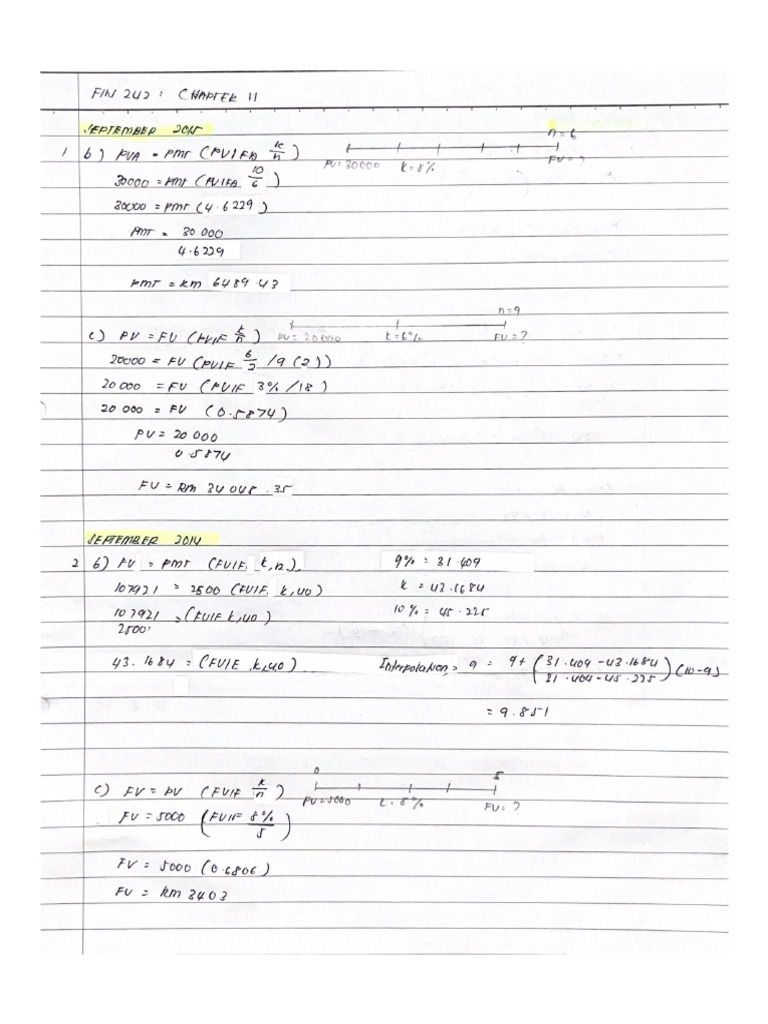 FIN 242 : CHAPTER 11
SEPTEMBER 2015
n = 6
1 b) PVA = PMT (PVIFA k/n)
PV = 30000 k = 8% FV = ?
30000 = PMT (PVIFA 10/6)
30000 = PMT (4.6229)
PMT = 30 000
4.6229
PMT = RM 6489.43
n = 9
c) PV = FV (PVIF k/n)
PV = 20000 k = 6% FV = ?
20000 = FV (PVIF 6/2 / 9 (2))
20 000 = FV (PVIF 3% / 18)
20 000 = FV (0.5874)
PV = 20 000
0.5874
FV = RM 34 048.35
SEPTEMBER 2014
2 b) FV = PMT (FVIF k, n) 9% = 31.409
107921 = 2500 (FVIF, k, 40) k = 43.1684
107921 = (FVIF k, 40) 10% = 45.225
2500
43.1684 = (FVIF, k, 40) Interpolation = 9 = 9 + (31.409 - 43.1684 / 31.404 - 45.225) (10 - 9)
= 9.851
0 5
c) FV = PV (FVIF k/n)
PV = 5000 k = 8% FV = ?
FV = 5000 (FVIF 8%/5)
FV = 5000 (0.6806)
FV = RM 3403